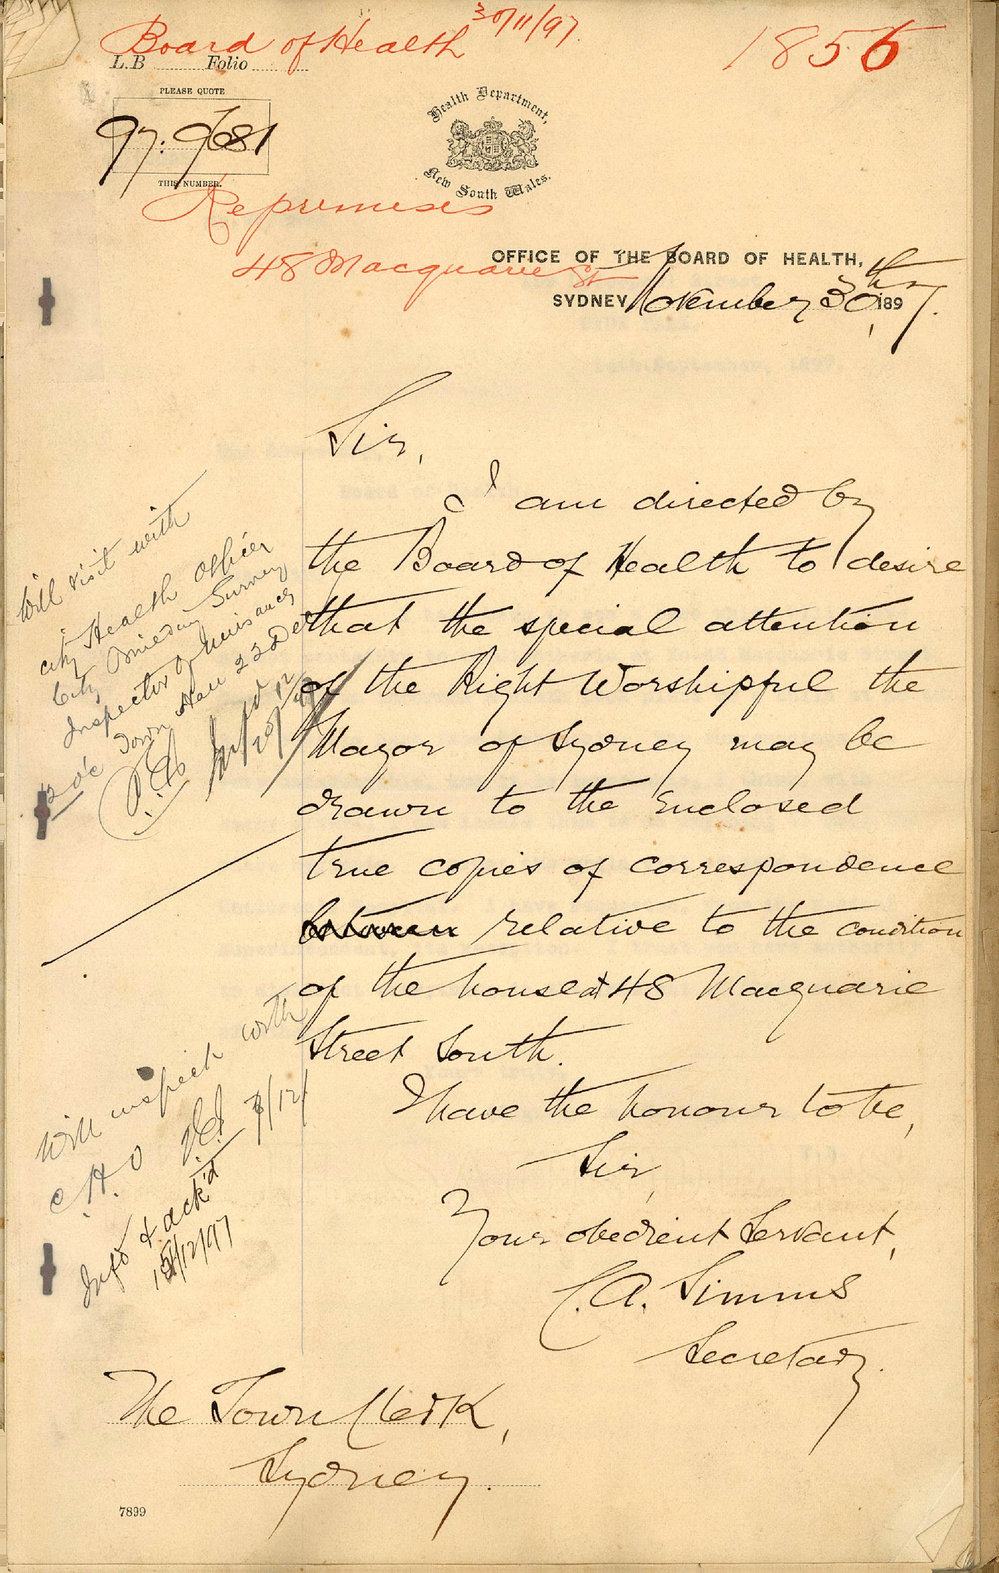 Board of Health 30/11/97.
1855
L.B Folio
PLEASE QUOTE
97: 9681
THIS NUMBER.
Health Department,
New South Wales.
Re premises
48 Macquarie St
OFFICE OF THE BOARD OF HEALTH,
SYDNEY November 30th 1897.
Sir,
I am directed by
the Board of Health to desire
that the special attention
of the Right Worshipful the
Mayor of Sydney may be
drawn to the enclosed
true copies of correspondence
between relative to the condition
of the house at 48 Macquarie
Street South.
I have the honour to be,
Sir,
Your obedient Servant,
C.A. Simms
Secretary.
The Town Clerk,
Sydney.
7899
Will visit with
City Health Officer
City Building Survey
Inspector of Nuisances
Town Hall 22 Dec
2 o'c
Will inspect with
C.H.O
7/12/
Info & ack'd
/12/97